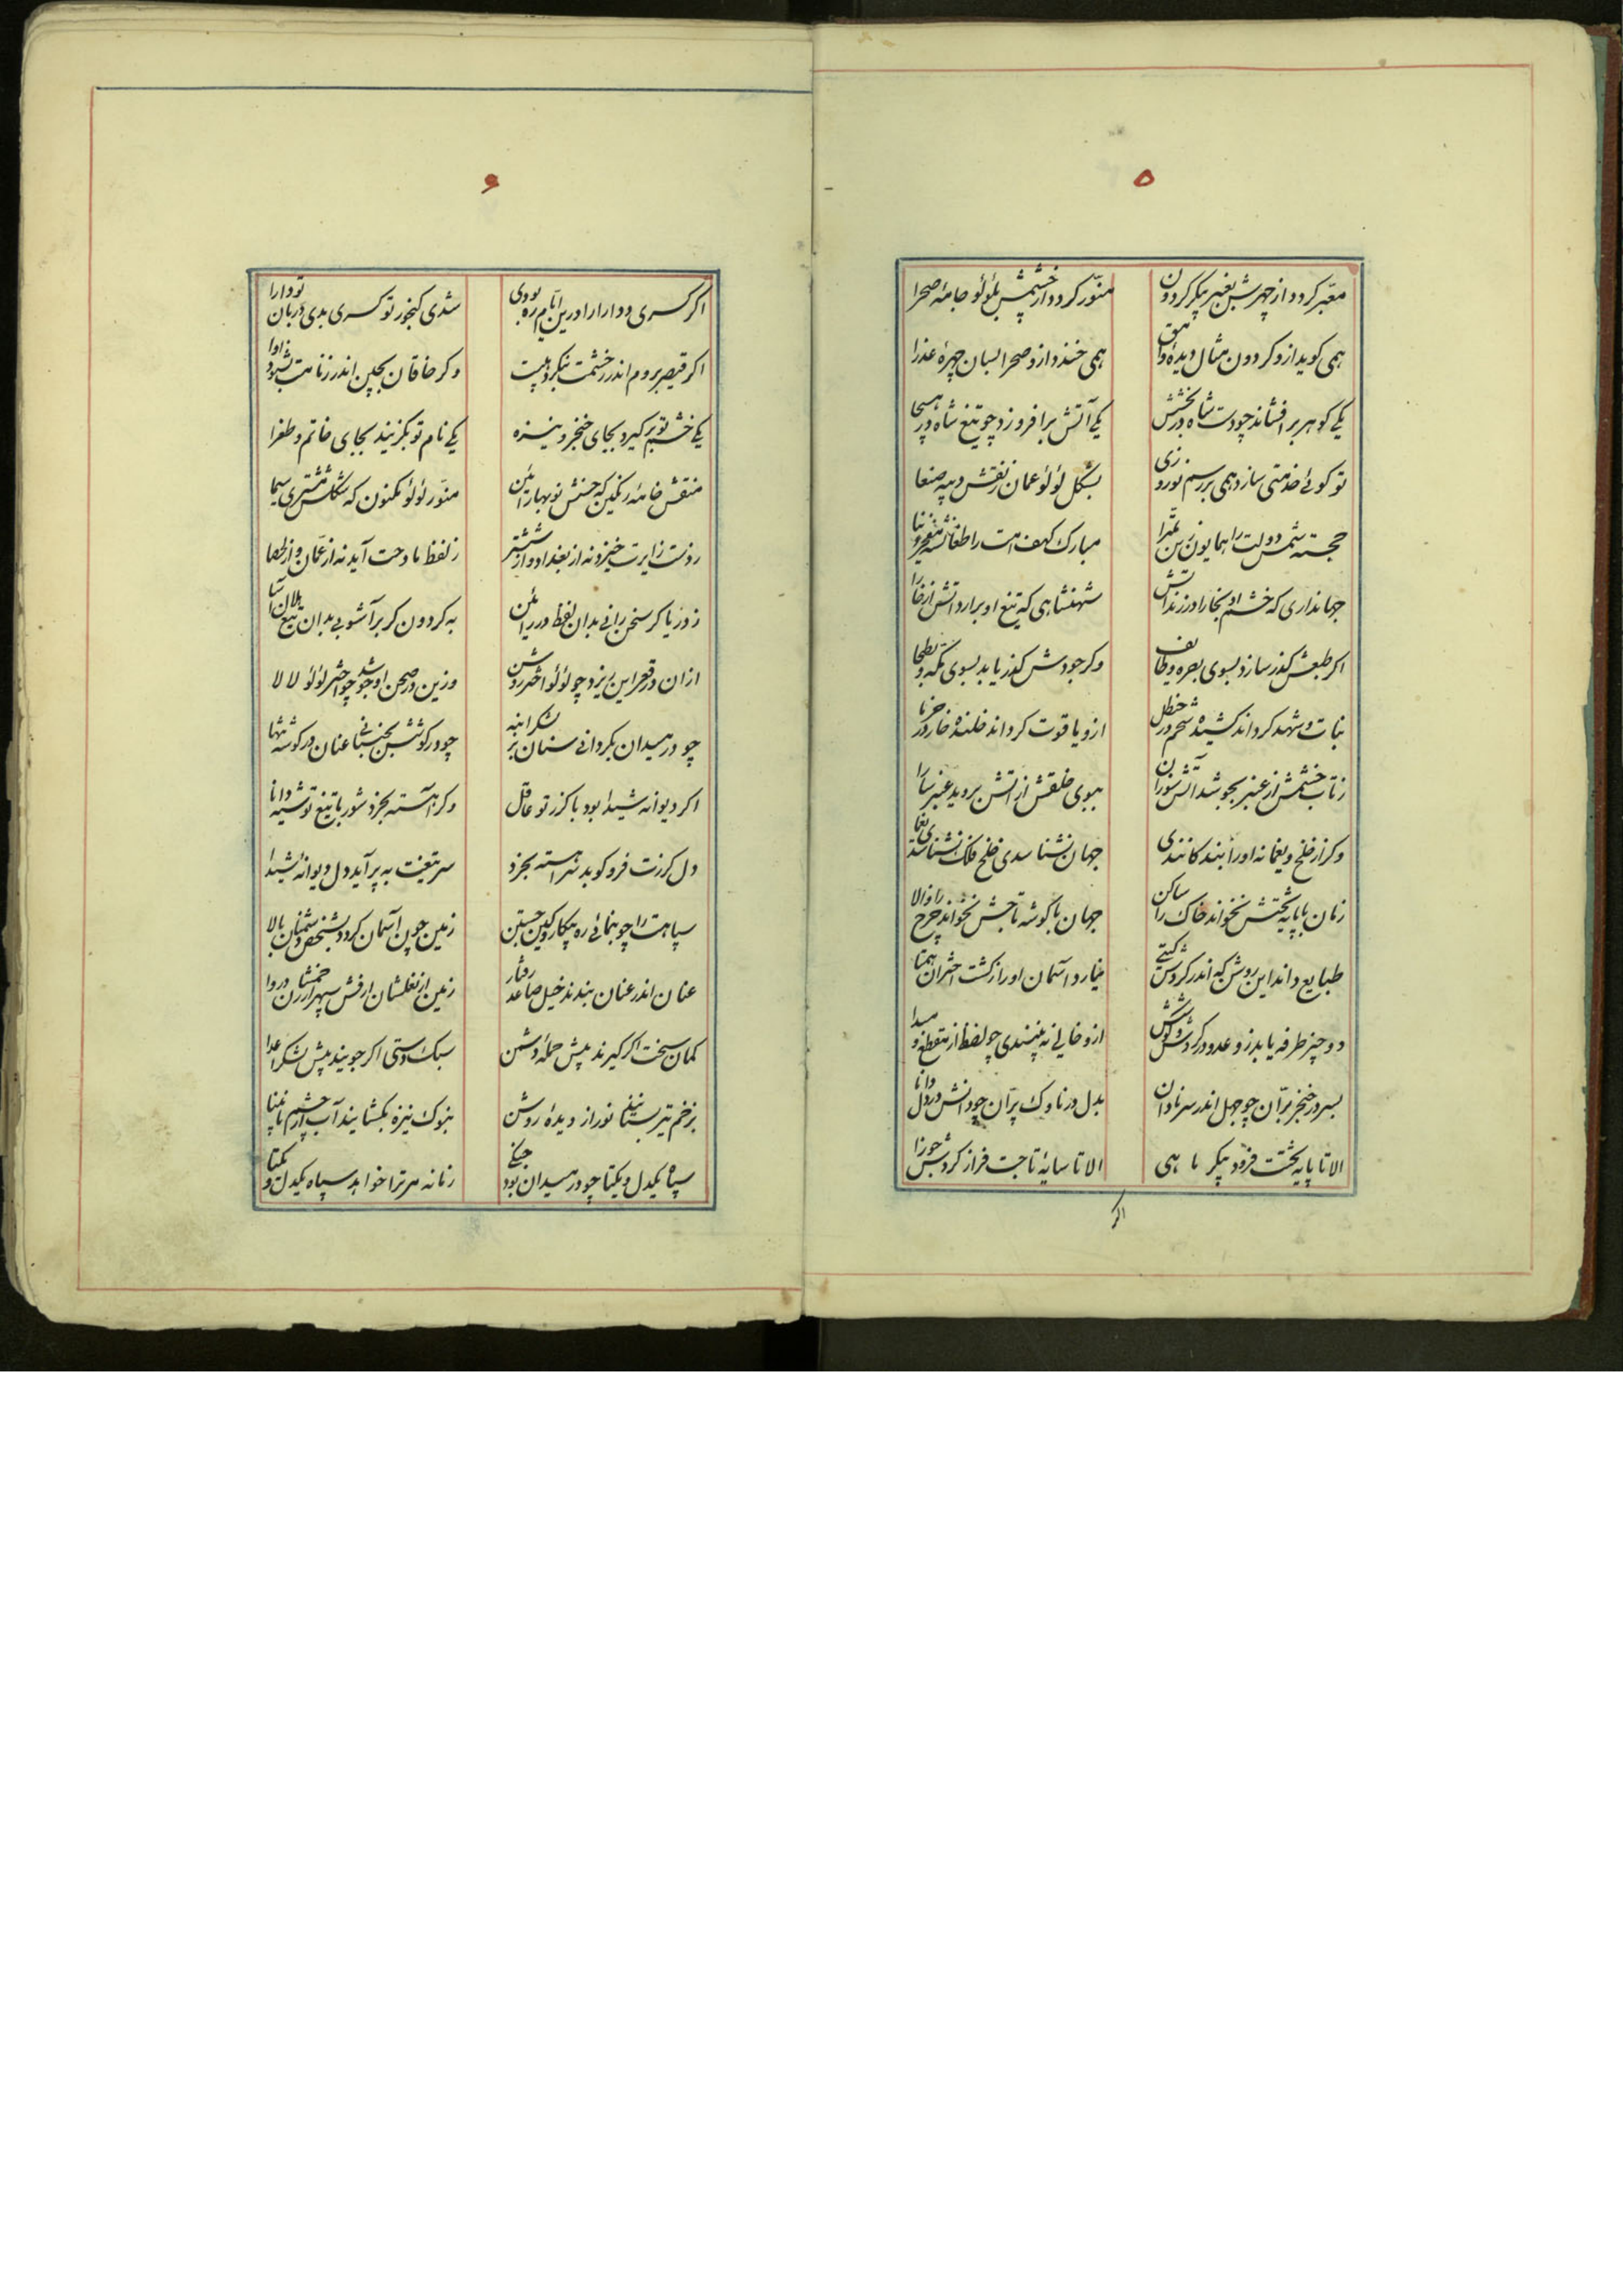 ۵
معبر کردد از چهرش بعنبر پیکر کردون
منور کردد از خشمش بلؤلؤ جامهٔ صحرا
همی کوید ازو کردون مثال دیدهٔ وامق
همی خندد ازو صحرا بسان چهرهٔ عذرا
یکی کوهر برافشاند چو دست شاه در بخشش
یکی آتش برافروزد چو تیغ شاه در هیجا
تو کوئی خدمتی سازد همی بر رسم نوروزی
بشکل لؤلؤ عمان ز نقش دیبه صنعا
خجسته شمس دولت را همایون زین
مبارک کهف امت را طغانشه مفخر دنیا
جهانداری که خشم او بخارا در زند آتش
شهنشاهی که تیغ او برارد آتش از خارا
اکر طبعش کذر سازد بسوی بصره و طائف
وکر جودش کذر یابد بسوی مکه و بطحا
نبات و شهد کرداند کشیده شحم در حنظل
ازو یاقوت کرداند خلنده خار در خرما
ز تاب خشمش از عنبر بجوشد آتش سوزان
ببوی خلقش از آتش بروید عنبر سارا
وکر از خلخ و یغما نه او را بنده کانندی
جهان نشناسدی خلخ فلک نشناسدی یغما
زمان با پایه تختش نخواند خاک را ساکن
جهان با کوشه تاجش نخواند چرخ را والا
طبایع داند این روش که اندر کردش کیتی
نیارد آسمان او را ز کشت اختران همتا
دو چیز طرفه یابد زو عدو در کردش
ازو خالی نه پسندی چو لفظ از مقطع و مبدا
بسر در خنجر بران چو جهل اندر سر نادان
بدل در ناوک پران چو دانش در دل دانا
الا تا پایه تختت فرود پیکر ماهی
الا تا سایهٔ تاجت فراز کردش جوزا
اکر
۶
اکر کسری و دارا را درین ایام ره بودی
شدی کنجور تو کسری بدی دربان تو دارا
اکر قیصر بروم اندر ز خشمت بنکرد هیبت
وکر خاقان بچین اندر ز نامت بشنود آوا
یکی خشم تو برکیرد بجای خنجر و نیزه
یکی نام تو بکزیند بجای خاتم و طغرا
منقش خامهٔ رنکین که جنسش نوبهار آئین
منور لؤلؤ مکنون که شکلش مشتری سیما
ز دست زایرت خیزد نه از بغداد و از ششتر
ز لفظ مادحت آید نه از عمان و از لحصا
ز دریا کر سخن رانی بدان لفظ درر آئین
به کردون کر برآشوبی بدان تیغ بلان آسا
ازان در قعر این ریزد چو لؤلؤ اختر روشن
وزین در صحن او جوشد چو اختر لؤلؤ لالا
چو در میدان بکردانی سنان بر لشکر انبه
چو در کوشش بجنبانی عنان در کوشه تنها
اکر دیوانه شیدا بود با کرز تو عاقل
وکر آهسته بخرد شود با تیغ تو شیدا
دل کرزت فرو کوبد سر آهسته بخرد
سر تیغت به پرآید دل دیوانه شیدا
سپاهت را چو بنمائی ره پیکار و کین جستن
زمین چون آسمان کردد بشخص دشمنان بالا
عنان اندر عنان بندند خیل صاعد رفتار
زمین از نعلشان ارزش سپهر از خشمشان دروا
کمان سخت اکر کیرند پیش حملهٔ دشمن
سبک دستی اکر جویند پیش لشکر اعدا
بزخم تیر بستانند نور از دیدهٔ روشن
بنوک نیزه بکشایند آب از چشم نابینا
سپاه یکدل و یکتا چو در میدان بود جنکی
زمانه مر ترا خواهد سپاه یکدل و یکتا